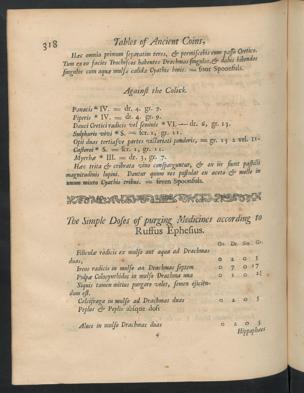 318
Tables of Ancient Coins,
Hæc omnia primum separatim teres, & permiscebis cum passo Cretico.
Tum ex eo facies Trochiscos habentes Drachmas singulas, & dabis bibendos
singulos cum aqua mulsa calida Cyathis binis. = four Spoonfuls.
Against the Colick.
Panacis * IV. = dr. 4. gr. 9.
Piperis * IV. = dr. 4. gr. 9.
Dauci Cretici radicis vel seminis * VI. = dr. 6. gr. 13.
Sulphuris vivi * S. = scr. 1, gr. 11.
Opii duas tertiasve partes victoriati ponderis, = gr. 13 2 vel 11.
Castorei * S. = scr. 1, gr. 11.
Myrrhæ * III. = dr. 3, gr. 7.
Hæc trita & cribrata vino consparguntur, & ex iis fiunt pastilli
magnitudinis lupini. Dantur quum res postulat ex aceto & melle in
unum mixto Cyathis tribus. = seven Spoonfuls.
The Simple Doses of purging Medicines according to
Ruffus Ephesius.
Oz. Dr. Scr. Gr.
Filiculæ radicis ex mulso aut aqua ad Drachmas
duas, 0 2 0 5
Ireos radicis in mulso an Drachmas septem 0 7 0 17
Pulpæ Colocynthidos in mulso Drachma una 0 1 0 2
Siquis tamen mitius purgare volet, semen ejicien-
dum est.
Calcifraga in mulso ad Drachmas duas 0 2 0 5
Peplos & Peplis absque dosi
Aloes in mulso Drachmas duas 0 2 0 5
Hippophaes